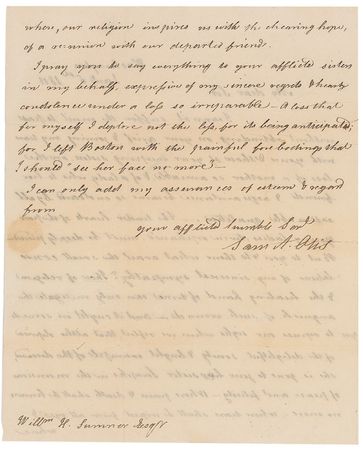 where, our religion inspires us with the chearing hope,
of a re-union with our departed friend.
I pray you to say everything to your afflicted sister
in my behalf, expressive of my sincere regrets & hearty
condolance under a loss so irreparable - A loss that
for myself I deplore not the less, for its being anticipated,
for I left Boston with the painful forebodings that
I should "see her face no more"!
I can only add my assurances of esteem & regard
from
your afflictd humble Sert
Sam A. Otis
Willm H. Sumner Esqr